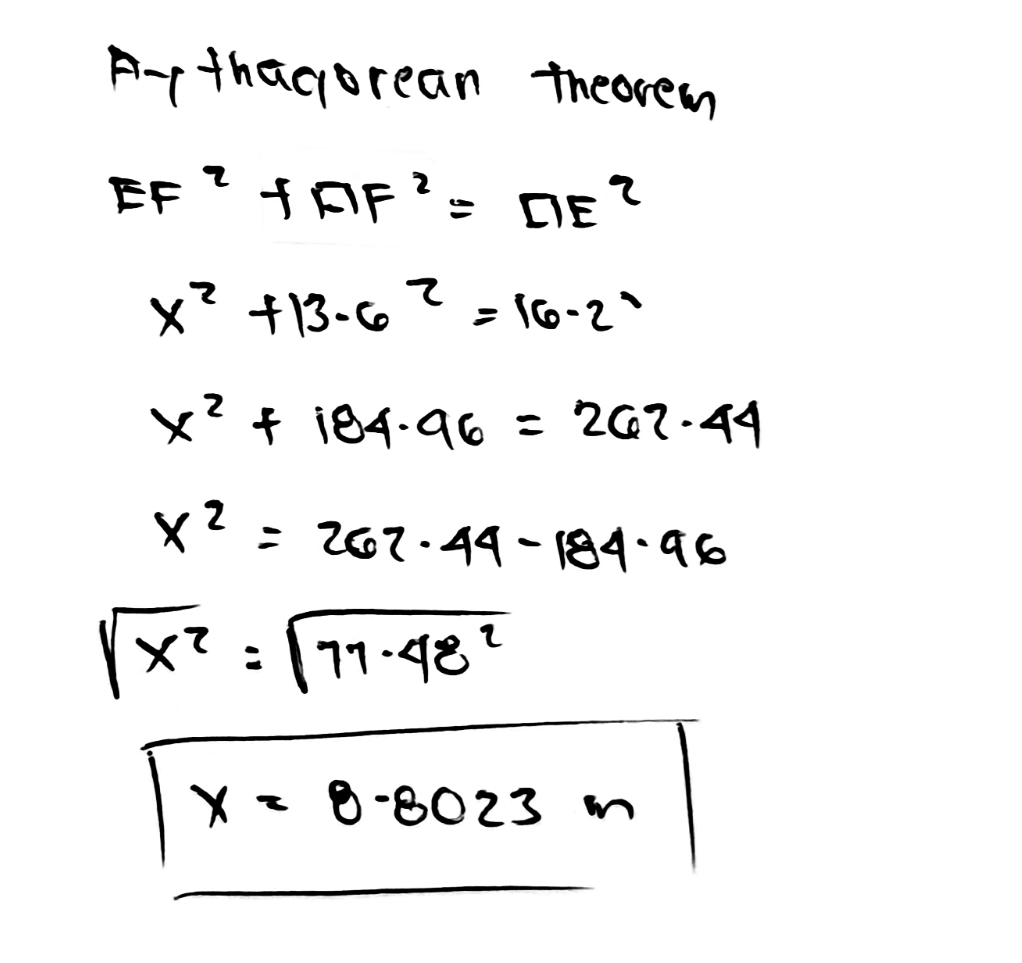 Pythagorean theorem
EF² + DF² = DE²
x² + 13.6² = 16.2²
x² + 184.96 = 262.44
x² = 262.44 - 184.96
√x² = √77.48²
x = 8.8023 m